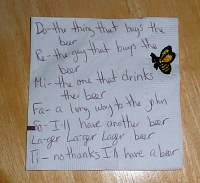 Do - the thing that buys the
beer
Re - the guy that buys the
beer
Mi - the one that drinks
the beer
Fa - a long way to the john
So - I'll have another beer
La-ger La-ger Lager beer
Ti - no thanks I'll have a beer